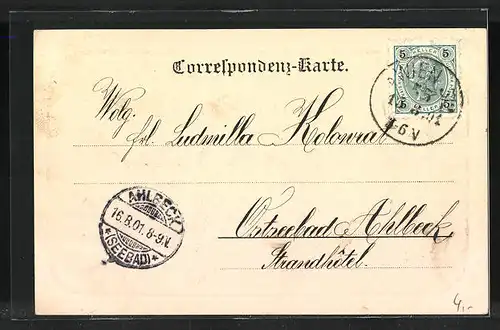 Correspondenz-Karte.
5 HELLER 5
5 5
15
8.01
Wolg.
frl. Ludmilla Kolowrat
AHLBECK
16.8.01.8-9.V.
*(SEEBAD)*
Ostseebad Ahlbeck
Strandhôtel.
4,-